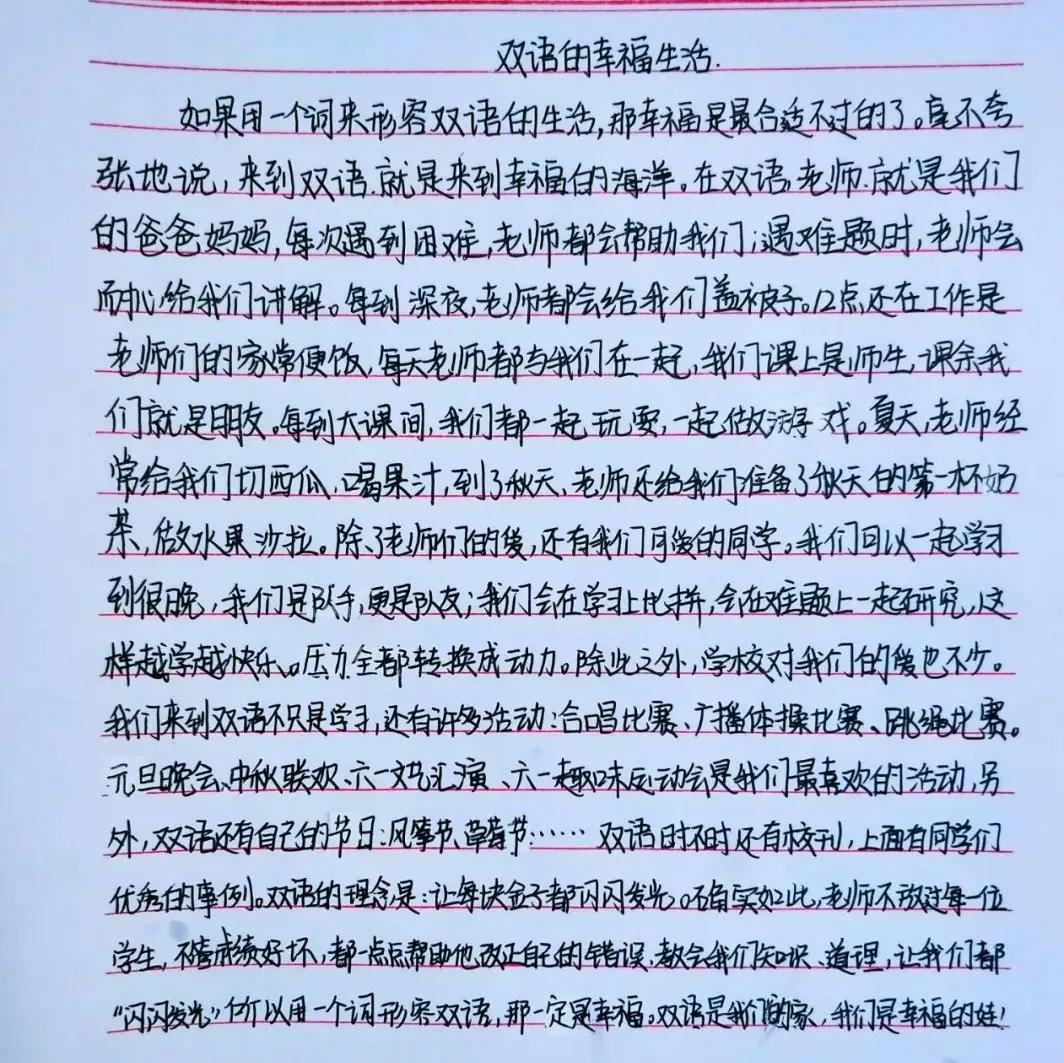 双语的幸福生活.
如果用一个词来形容双语的生活,那幸福是最合适不过的了。毫不夸
张地说,来到双语就是来到幸福的海洋。在双语,老师就是我们
的爸爸妈妈,每次遇到困难,老师都会帮助我们;遇难题时,老师会
耐心给我们讲解。每到深夜,老师都会给我们盖被子。12点还在工作是
老师们的家常便饭,每天老师都与我们在一起,我们课上是师生,课余我
们就是朋友。每到大课间,我们都一起玩耍,一起做游戏。夏天,老师经
常给我们切西瓜,喝果汁,到了秋天,老师还给我们准备了秋天的第一杯奶
茶,做水果沙拉。除了老师们的爱,还有我们可爱的同学。我们可以一起学习
到很晚,我们是队手,更是队友;我们会在学习上比拼,会在难题上一起研究,这
样越学越快乐。压力全都转换成动力。除此之外,学校对我们的爱也不少。
我们来到双语不只是学习,还有许多活动:合唱比赛、广播体操比赛、跳绳比赛。
元旦晚会、中秋联欢、六一文艺汇演、六一趣味运动会是我们最喜欢的活动,另
外,双语还有自己的节日:风筝节、草莓节······双语时不时还有校刊,上面有同学们
优秀的事例。双语的理念是:让每块金子都闪闪发光。确实如此,老师不放过每一位
学生,不管成绩好坏,都一点点帮助他改正自己的错误,教会我们知识、道理,让我们都
“闪闪发光”所以用一个词形容双语,那一定是幸福。双语是我们的家,我们是幸福的娃!